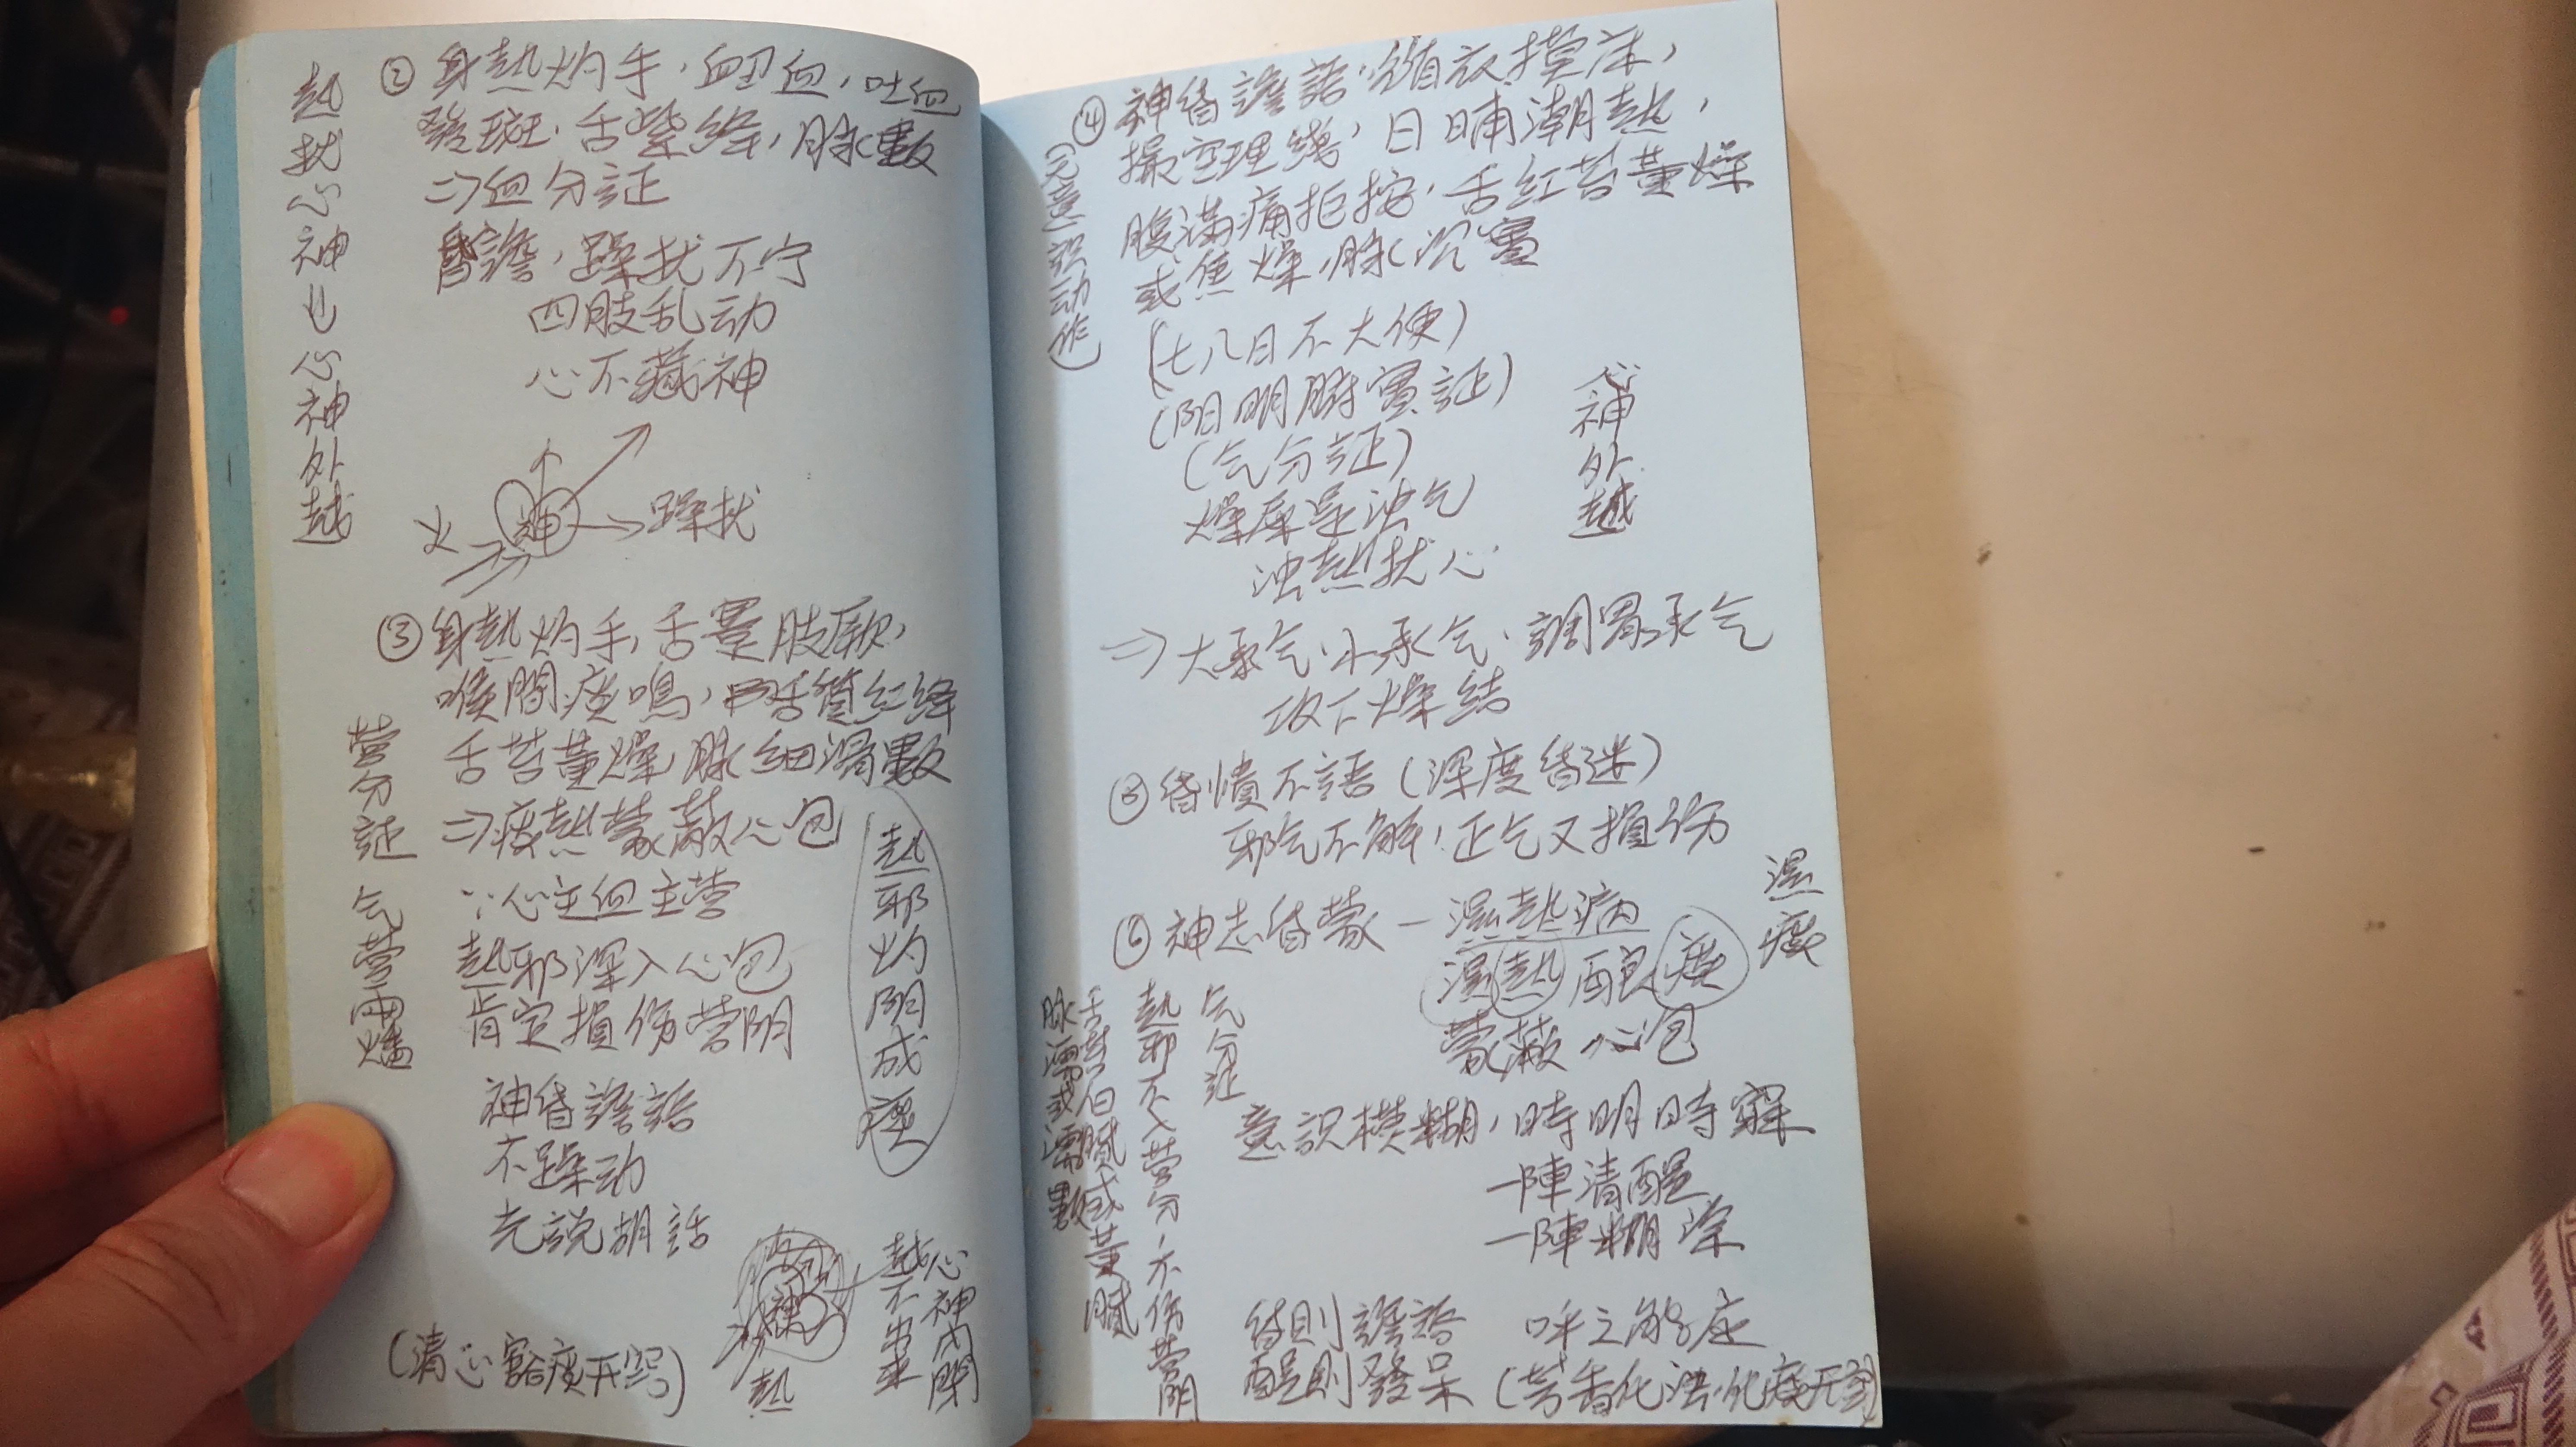 ② 身熱灼手，衄血，吐血
發斑，舌紫絳，脉數
⇒血分証
昏譫，躁扰不宁
四肢乱动
心不藏神
熱扰心神也心神外越
火
神
躁扰
③ 身熱灼手，舌蹇肢厥，
喉間痰鳴，舌質紅絳
舌苔黃燥，脉細滑數
⇒痰熱蒙蔽心包
∵心主血主营
熱邪深入心包
肯定損伤营阴
神昏譫語
不躁动
光説胡話
(清心豁痰开窍)
营分証
气营両燔
熱邪灼阴成痰
痰
神
熱
心神内閉
越不出来
④ 神昏譫語，循衣摸床，
撮空理綫，日晡潮熱，
腹滿痛拒按，舌紅苔黃燥
或焦燥，脉沉實
(无意识动作)
(七八日不大便)
(阳明腑實証)
(气分証)
燥屎是浊气
浊熱扰心
心神外越
⇒大承气·小承气·調胃承气
攻下燥結
⑤ 昏憒不語(深度昏迷)
邪气不解，正气又損伤
⑥ 神志昏蒙－濕熱病
濕熱酿痰
蒙蔽心包
濕痰
意識模糊，時明時寐
一陣清醒
一陣糊涂
昏則譫語 呼之能应
醒則發呆 (芳香化浊，化痰开窍)
气分証
熱邪不入营分－不伤营阴
舌苔白膩或黃膩
脉濡或濡數